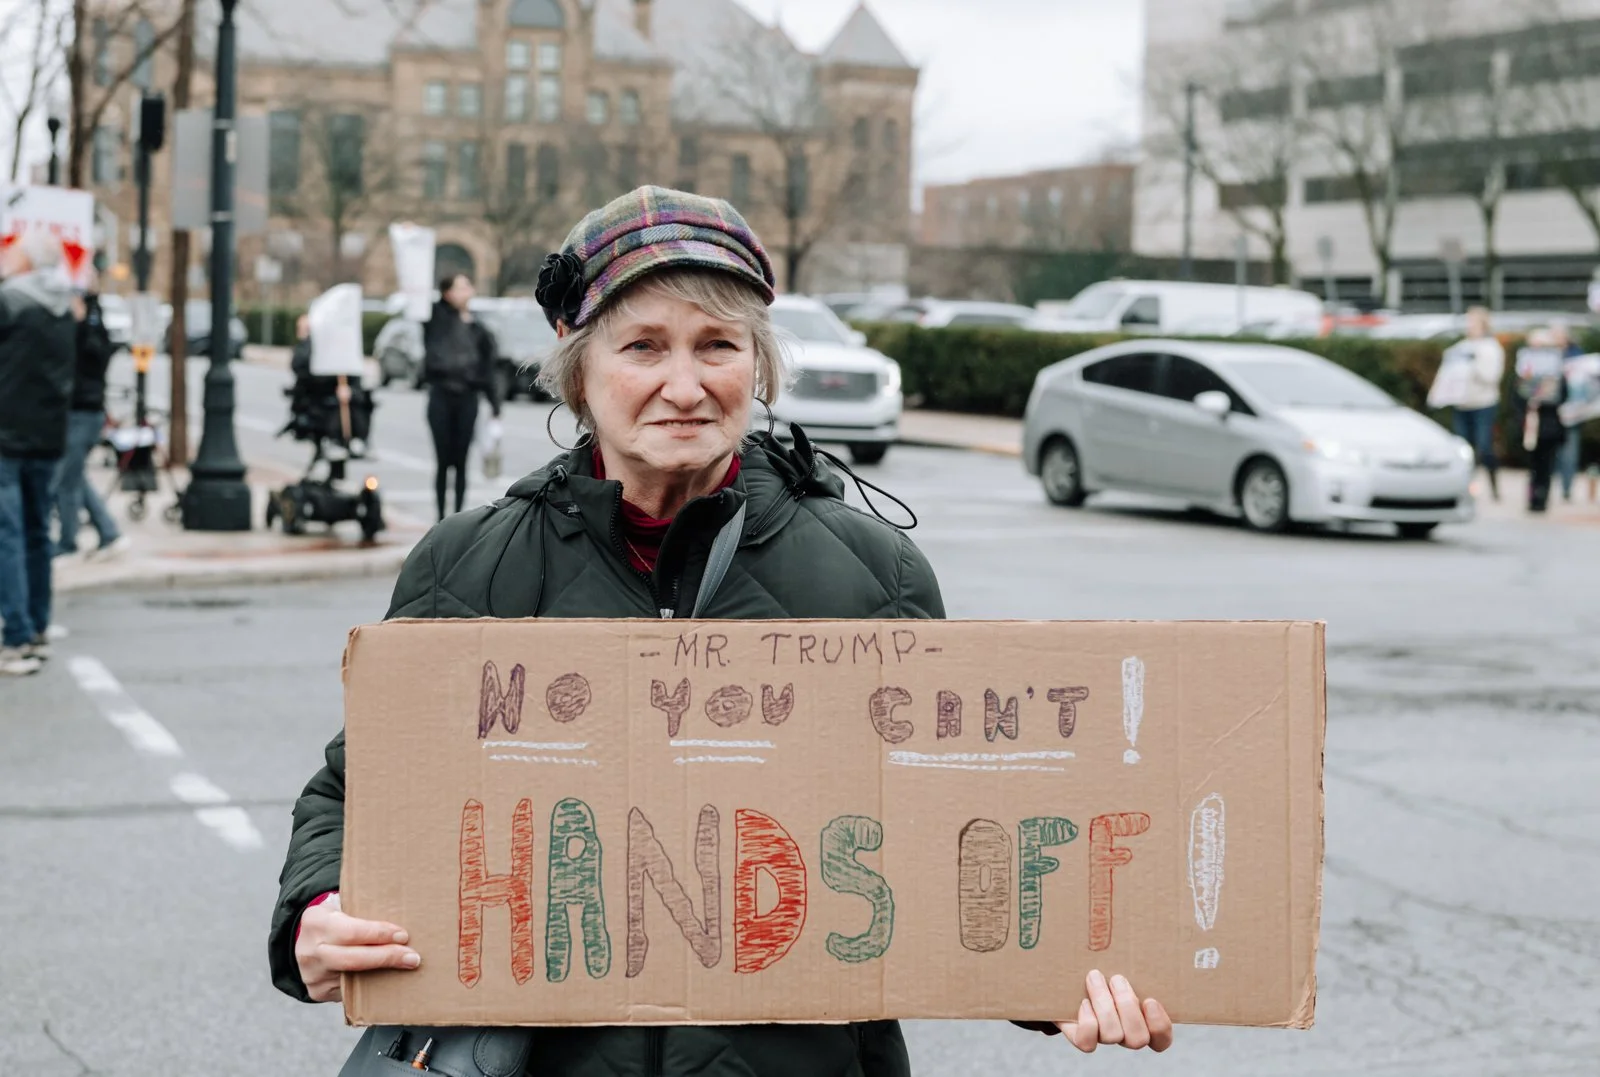 -MR. TRUMP-
NO YOU CAN'T!
HANDS OFF!